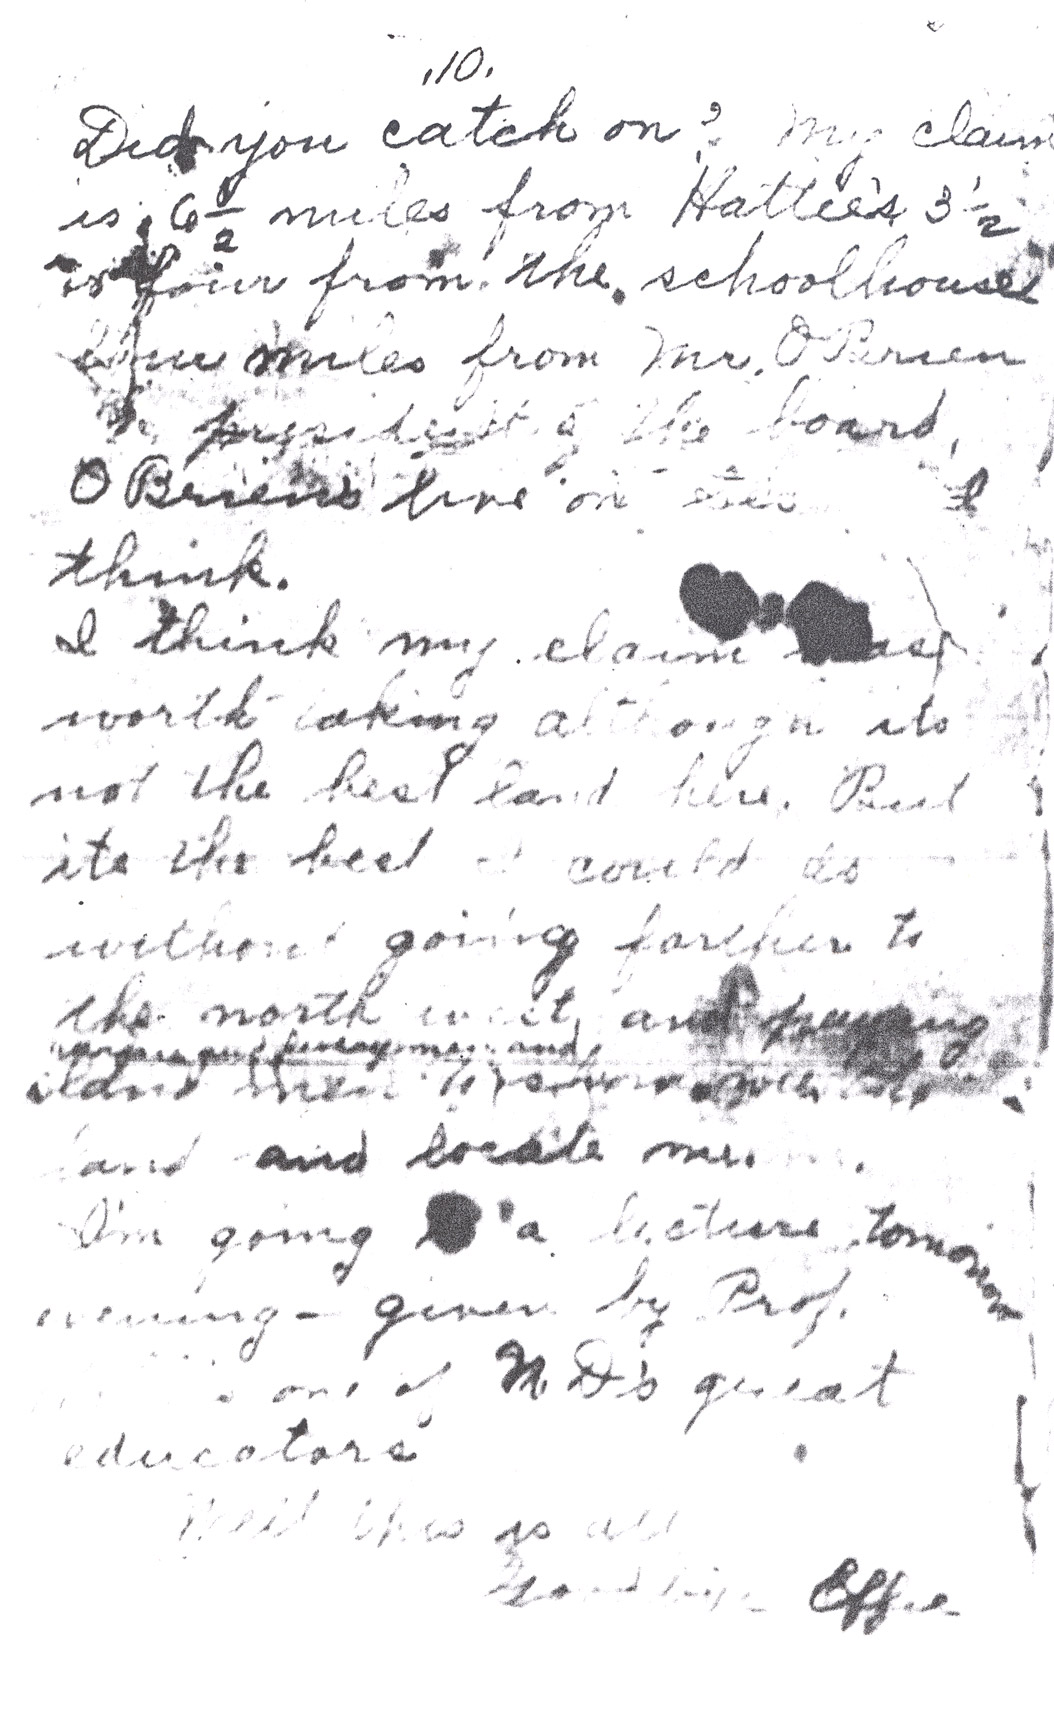 .10.
Did you catch on? My claim
is 6½ miles from Hattie's 3½
or four from the schoolhouse
miles from Mr. O'Brien
president of the board,
O'Briens live on I
think.
I think my claim was
worth taking although its
not the best land here. But
its the best I could do
without going farther to
the north west, and paying
land men to
land and locate me.
I'm going to a lecture tomorrow
evening - given by Prof.
one of N.D's great
educators
Well this is all
Goodbye Effie